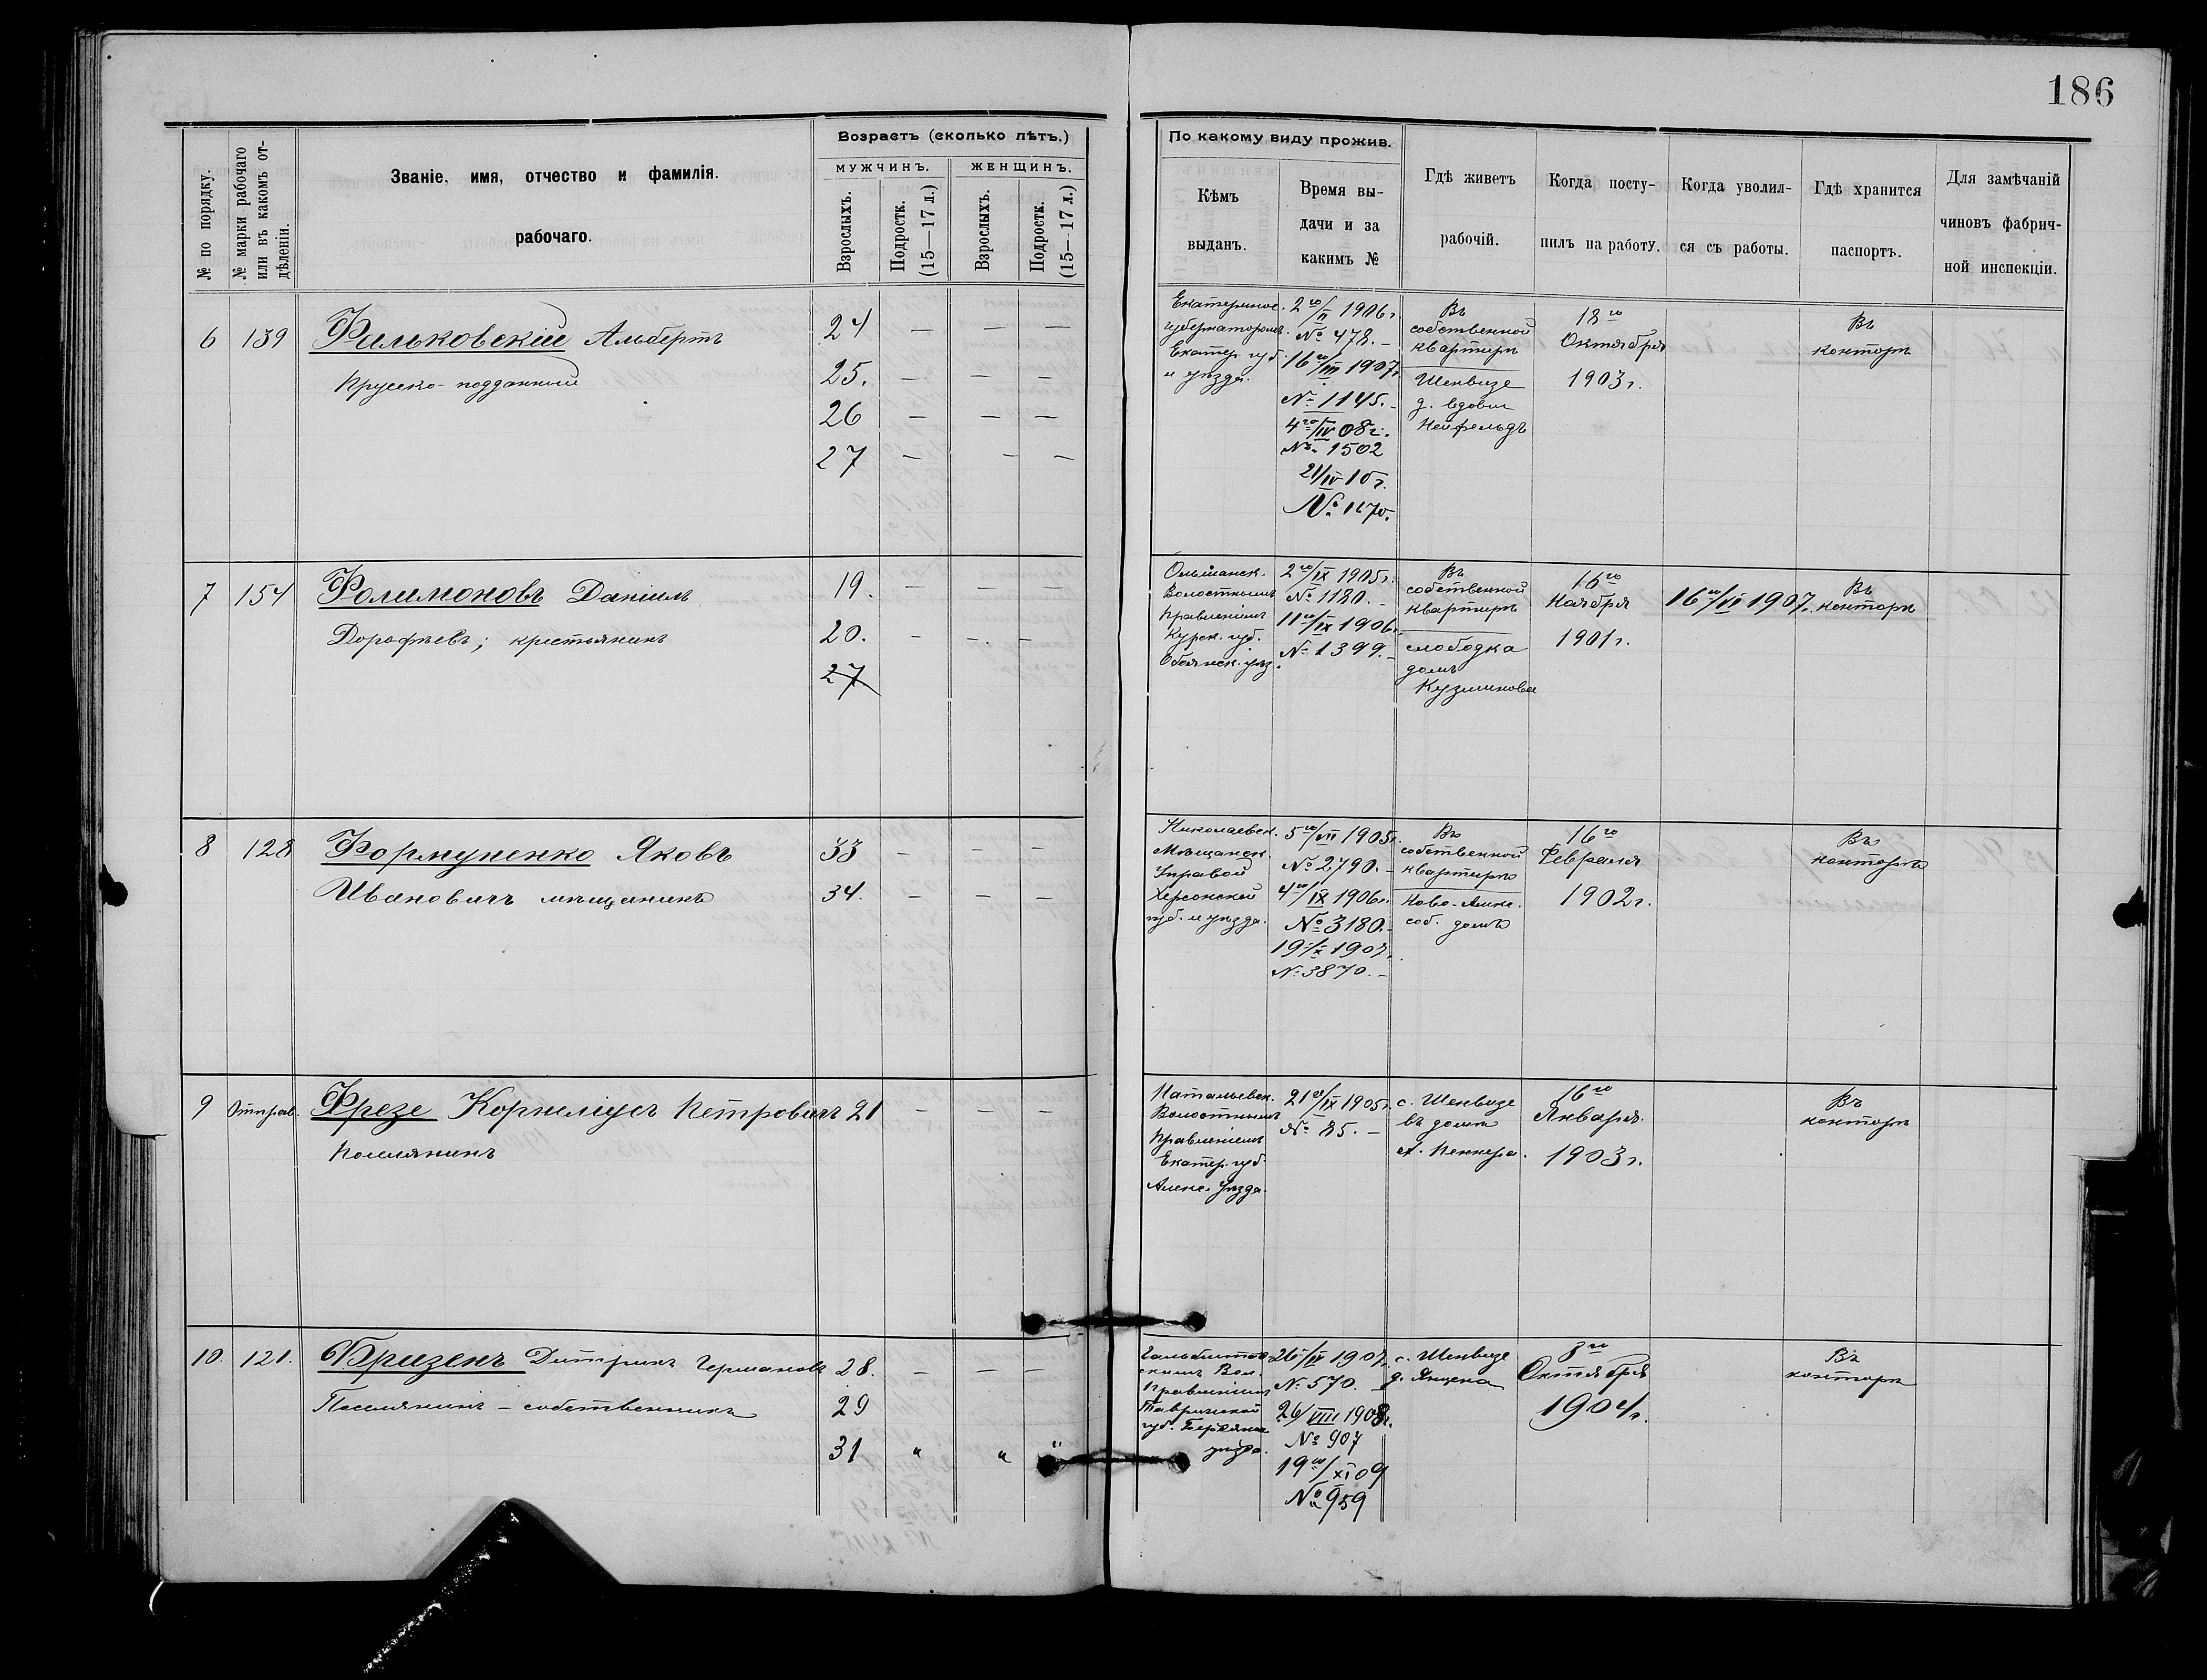 186
Возрастъ (сколько лѣтъ.)
МУЖЧИНЪ.
ЖЕНЩИНЪ.
№ по порядку.
№ марки рабочаго
или въ какомъ от-
дѣленіи.
Званіе, имя, отчество и фамилія.
рабочаго.
Взрослыхъ.
Подростк.
(15—17 л.)
Взрослыхъ.
Подростк.
(15—17 л.)
По какому виду прожив.
Кѣмъ
выданъ.
Время вы-
дачи и за
какимъ №
Гдѣ живетъ
рабочій.
Когда посту-
пилъ на работу.
Когда уволил-
ся съ работы.
Гдѣ хранится
паспортъ.
Для замѣчаній
чиновъ фабрич-
ной инспекціи.
6 139 Фильковскій Альбертъ 24 — — —
Прусско-подданный 25. — — —
26 — — —
27 — — —
Екатеринос.
губернаторомъ.
Екатер. губ.
и уѣзда.
2го/II 1906 г
№ 478. –
16го/III 1907 г
№ 1145. –
4го/IV 08 г.
№ 1502
21/IV 10 г.
№ 1170.
Въ
собственной
квартирѣ
Шенвизе
д. вдовы
Нейфельдъ
18го
Октября
1903 г.
Въ
конторѣ
7 154 Фолимоновъ Даніилъ 19. — — —
Дорофѣевъ; крестьянинъ 20. — — —
27
Ольшанск.
Волостнымъ
Правленіемъ
Курск. губ.
Обоянск. уѣз.
2го/IX 1905 г.
№ 1180. –
11го/IX 1906 г.
№ 1399. –
Въ
собственной
квартирѣ
слободка
домъ
Кузминовой
16го
Ноября
1901 г.
16го/VI 1907 г.
Въ
конторѣ
8 128 Формупенко Яковъ 33 — — —
Ивановичъ мѣщанинъ 34. — — —
Николаевск.
Мѣщанск.
Управой
Херсонской
губ. и уѣзда.
5го/VII 1905 г.
№ 2790. –
4го/IX 1906 г.
№ 3180. –
19/X 1907 г.
№ 3870. –
Въ
собственной
квартирѣ
Ново-Алекс.
соб. домъ
16го
Февраля
1902 г.
Въ
конторѣ
9 Фрезе Корнеліусъ Петровичъ 21 — — —
Поселянинъ
Натальевск.
Волостнымъ
Правленіемъ
Екатер. губ.
Алекс. Уѣзда.
21го/IX 1905 г.
№ 85. –
с. Шенвизе
въ домѣ
А. Пеннера.
16го
Января.
1903 г.
Въ
конторѣ
10. 121. Фризенъ Дитрихъ Германовъ 28. — — —
Поселянинъ – собственникъ 29
31 " " "
Гальбштад-
скимъ Вол.
Правленіемъ
Таврической
губ. Бердянск.
уѣзда.
26/IV 1907 г.
№ 570. –
26/VIII 1908 г.
№ 907
19го/XI 09
№ 959
с. Шенвизе
д. Янцена
8го
Октября
1904 г.
Въ
конторѣ